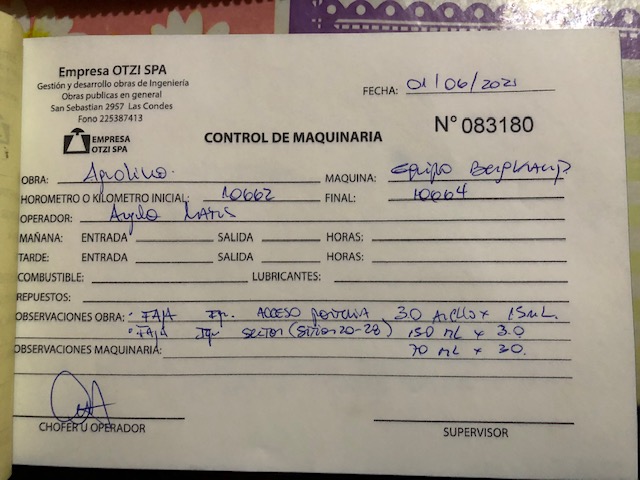 Empresa OTZI SPA
Gestión y desarrollo obras de Ingeniería
Obras publicas en general
San Sebastian 2957 Las Condes
Fono 225387413
FECHA: 01/06/2021
EMPRESA
OTZI SPA
CONTROL DE MAQUINARIA
N° 083180
OBRA: MAQUINA: equipo
HOROMETRO O KILOMETRO INICIAL: 10662 FINAL: 10664
OPERADOR:
MAÑANA: ENTRADA SALIDA HORAS:
TARDE: ENTRADA SALIDA HORAS:
COMBUSTIBLE: LUBRICANTES:
REPUESTOS:
OBSERVACIONES OBRA: • FAJA Izq. ACCESO 30 Ancho x 15 mL.
• FAJA Izq. Sector (20-28) 150 mL x 30
OBSERVACIONES MAQUINARIA: 70 mL x 30.
CHOFER U OPERADOR SUPERVISOR